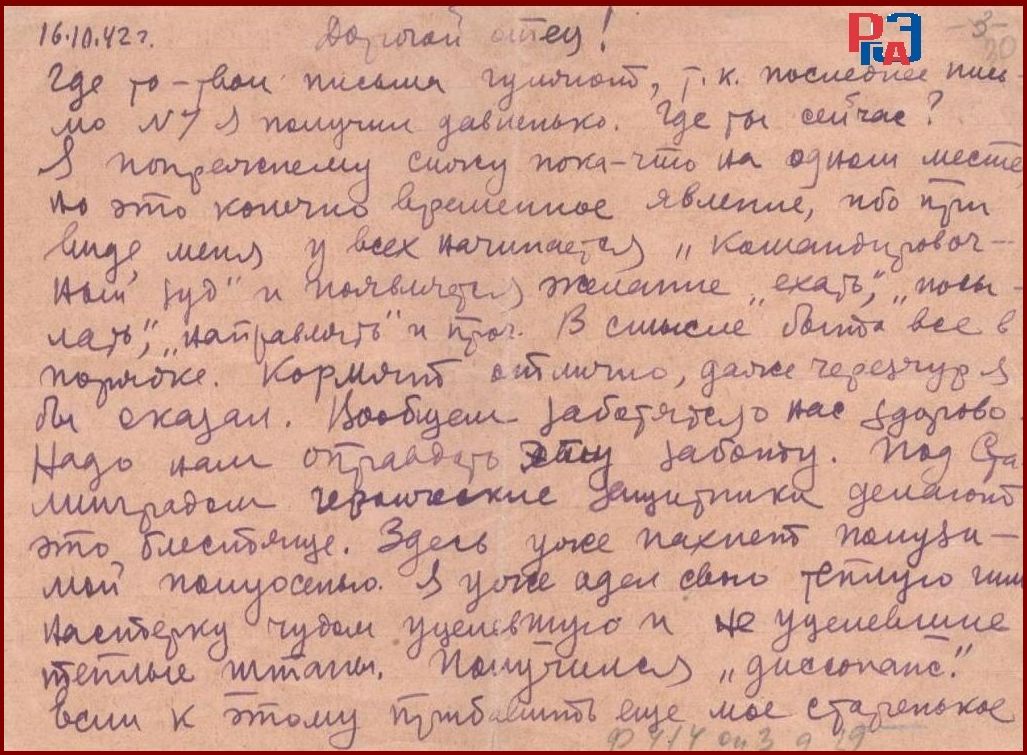 16.10.42 г. Дорогой отец!
РГАЭ
-3-
30
Где то-твои письма гуляют, т.к. последнее пись-
мо №7 я получил давненько. Где ты сейчас?
Я попрежнему сижу пока-что на одном месте,
но это конечно временное явление, ибо при
виде меня у всех начинается „командировоч-
ный зуд" и появляется желание „ехать", „посы-
лать", „направлять" и проч. В смысле быта все в
порядке. Кормят отлично, даже черезчур я
бы сказал. Вообщем заботятся о нас здорово.
Надо нам оправдать эту заботу. Под Ста-
линградом героические защитники делают
это блестяще. Здесь уже пахнет полузи-
мой полуосенью. Я уже одел свою теплую гим
настерку чудом уцелевшую и не уцелевшие
теплые штаны. Получился „диссонанс".
если к этому прибавить еще мое старенькое
Ф 414 оп 3 д 29